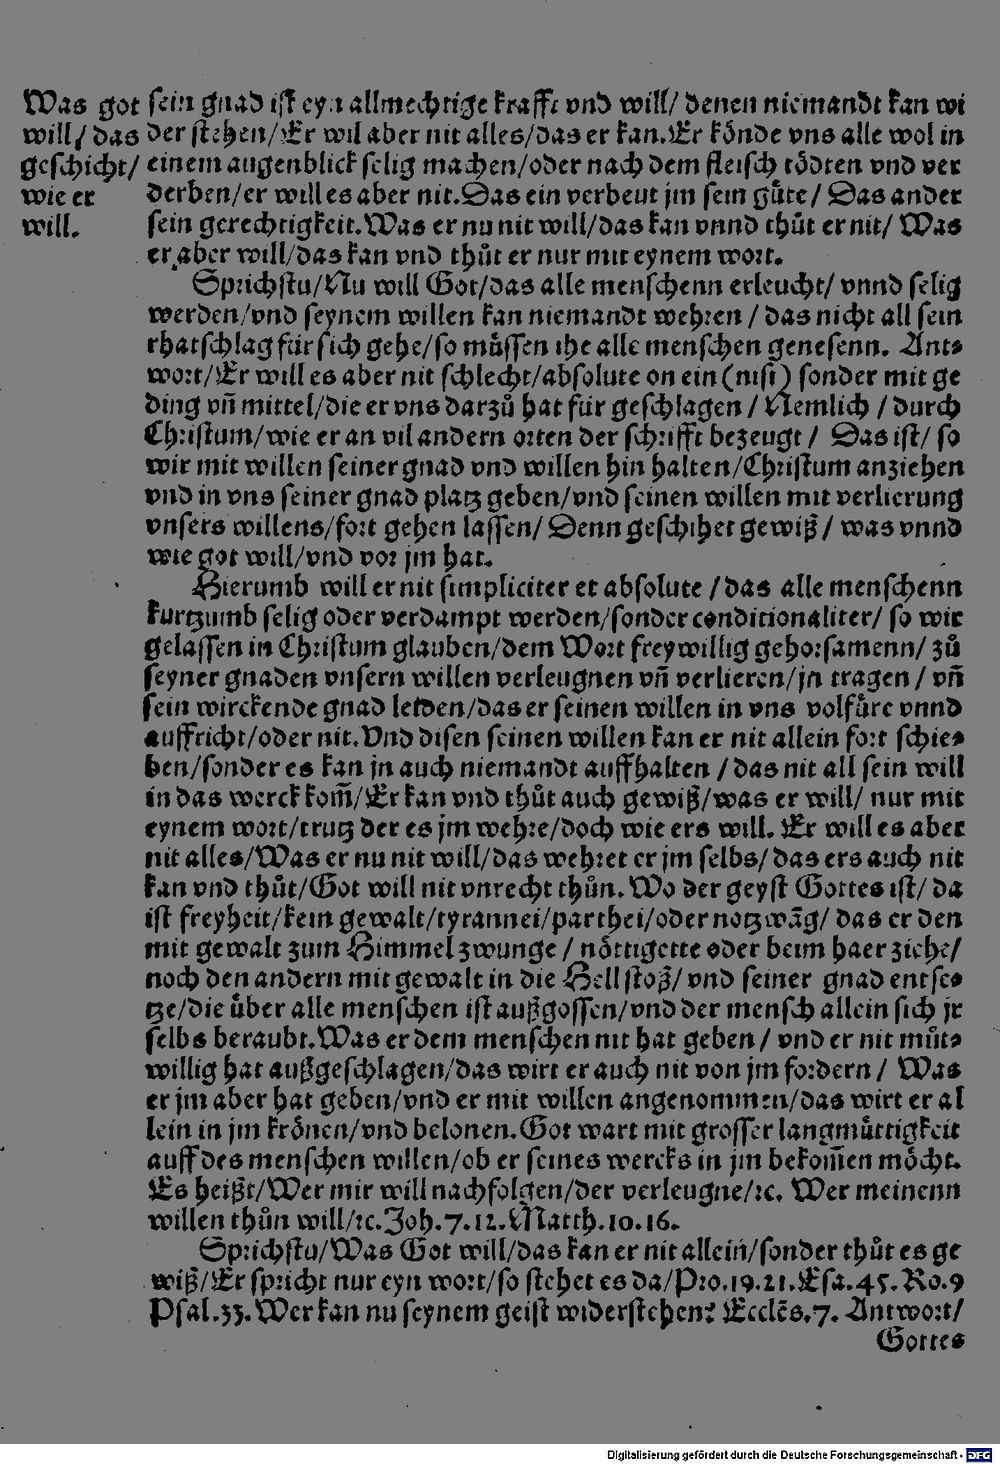 Was got
will/ das
geschicht/
wie er
will.
sein gnad ist eyn allmechtige krafft vnd will/ denen niemandt kan wi
der stehen/Er wil aber nit alles/das er kan.Er könde vns alle wol in
einem augenblick selig machen/oder nach dem fleisch tödten vnd ver
derben/er will es aber nit.Das ein verbeut jm sein gůte/ Das ander
sein gerechtigkeit.Was er nu nit will/das kan vnnd thůt er nit/ Was
er aber will/das kan vnd thůt er nur mit eynem wort.
Sprichstu/Nu will Got/das alle menschenn erleucht/ vnnd selig
werden/vnd seynem willen kan niemandt wehren / das nicht all sein
rhatschlag für sich gehe/so müssen ihe alle menschen genesenn. Ant⸗
wort/Er will es aber nit schlecht/absolute on ein (nisi) sonder mit ge
ding vñ mittel/die er vns darzů hat für geschlagen / Nemlich / durch
Christum/wie er an vil andern orten der schrifft bezeugt / Das ist/ so
wir mit willen seiner gnad vnd willen hin halten/Christum anziehen
vnd in vns seiner gnad platz geben/vnd seinen willen mit verlierung
vnsers willens/fort gehen lassen/ Denn geschihet gewiß/ was vnnd
wie got will/vnd vor jm hat.
Hierumb will er nit simpliciter et absolute / das alle menschenn
kurtzumb selig oder verdampt werden/sonder conditionaliter/ so wir
gelassen in Christum glauben/dem Wort freywillig gehorsamenn/ zů
seyner gnaden vnsern willen verleugnen vñ verlieren/jn tragen / vñ
sein wirckende gnad leiden/das er seinen willen in vns volfüre vnnd
auffricht/oder nit.Vnd disen seinen willen kan er nit allein fort schie⸗
ben/sonder es kan jn auch niemandt auffhalten / das nit all sein will
in das werck kom̃/Er kan vnd thůt auch gewiß/was er will/ nur mit
eynem wort/trutz der es jm wehre/doch wie ers will. Er will es aber
nit alles/Was er nu nit will/das wehret er jm selbs/ das ers auch nit
kan vnd thůt/Got will nit vnrecht thůn. Wo der geyst Gottes ist/ da
ist freyheit/kein gewalt/tyrannei/parthei/oder notzwãg/ das er den
mit gewalt zum Himmel zwunge / nöttigette oder beim haer ziehe/
noch den andern mit gewalt in die Hell stoß/ vnd seiner gnad entse⸗
tze/die über alle menschen ist außgossen/vnd der mensch allein sich jr
selbs beraubt.Was er dem menschen nit hat geben / vnd er nit můt⸗
willig hat außgeschlagen/das wirt er auch nit von jm fordern / Was
er jm aber hat geben/vnd er mit willen angenommen/das wirt er al
lein in jm krönen/vnd belonen.Got wart mit grosser langmüttigkeit
auff des menschen willen/ob er seines wercks in jm bekom̃en möcht.
Es heißt/Wer mir will nachfolgen/der verleugne/ꝛc. Wer meinenn
willen thůn will/ꝛc.Joh.7.12.Matth.10.16.
Sprichstu/Was Got will/das kan er nit allein/sonder thůt es ge
wiß/Er spricht nur eyn wort/so stehet es da/Pro.19.21.Esa.45.Ro.9
Psal.33.Wer kan nu seynem geist widerstehen? Ecclẽs.7. Antwort/
Gottes
Digitalisierung gefördert durch die Deutsche Forschungsgemeinschaft - DFG